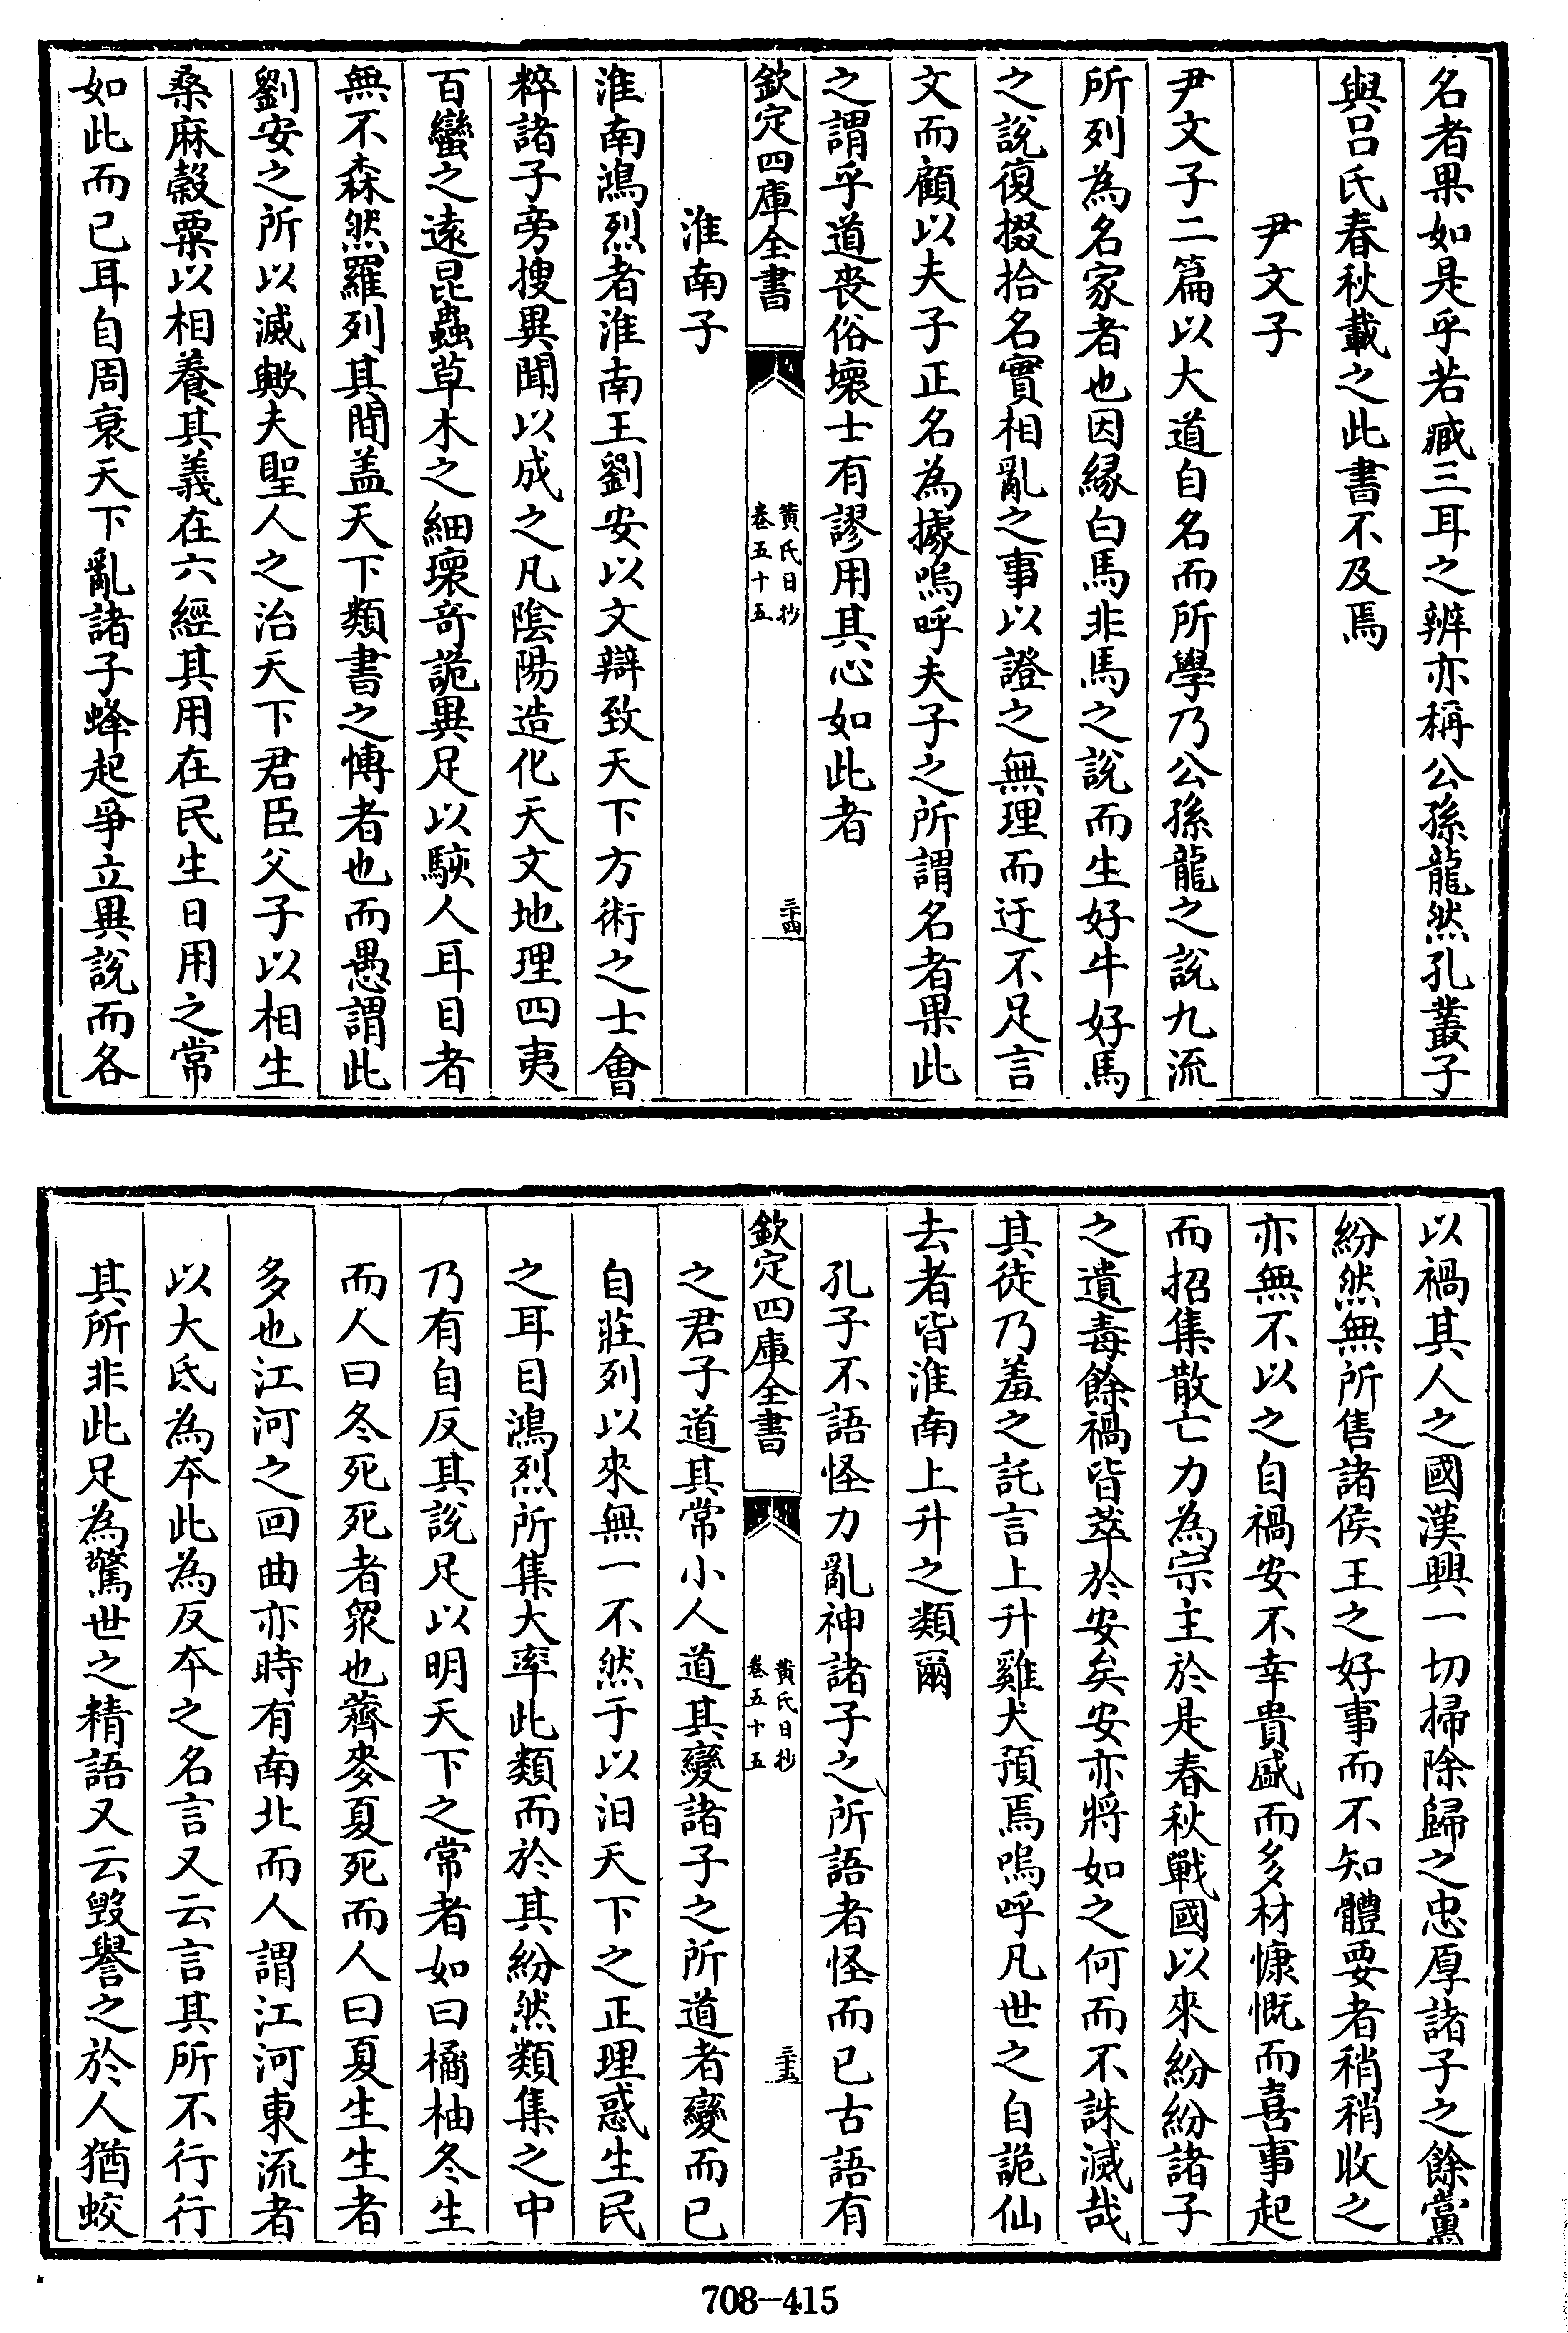 名者果如是乎若臧三耳之辨亦稱公孫龍然孔叢子
與呂氏春秋載之此書不及焉
尹文子
尹文子二篇以大道自名而所學乃公孫龍之說九流
所列為名家者也因緣白馬非馬之說而生好牛好馬
之說復掇拾名實相亂之事以證之無理而迂不足言
文而顧以夫子正名為據嗚呼夫子之所謂名者果此
之謂乎道喪俗壞士有謬用其心如此者
欽定四庫全書
黃氏日抄
卷五十五
三十四
淮南子
淮南鴻烈者淮南王劉安以文辯致天下方術之士會
粹諸子旁搜異聞以成之凡陰陽造化天文地理四夷
百蠻之遠昆蟲草木之細瓌奇詭異足以駭人耳目者
無不森然羅列其間盖天下類書之愽者也而愚謂此
劉安之所以滅歟夫聖人之治天下君臣父子以相生
桑麻穀粟以相養其義在六經其用在民生日用之常
如此而已耳自周衰天下亂諸子蜂起爭立異說而各
以禍其人之國漢興一切掃除歸之忠厚諸子之餘黨
紛然無所售諸侯王之好事而不知體要者稍稍收之
亦無不以之自禍安不幸貴盛而多材慷慨而喜事起
而招集散亡力為宗主於是春秋戰國以來紛紛諸子
之遺毒餘禍皆萃於安矣安亦將如之何而不誅滅哉
其徒乃羞之託言上升雞犬預焉嗚呼凡世之自詭仙
去者皆淮南上升之類爾
孔子不語怪力亂神諸子之所語者怪而已古語有
欽定四庫全書
黃氏日抄
卷五十五
三十五
之君子道其常小人道其變諸子之所道者變而已
自莊列以來無一不然于以汩天下之正理惑生民
之耳目鴻烈所集大率此類而於其紛然類集之中
乃有自反其說足以明天下之常者如曰橘柚冬生
而人曰冬死死者眾也薺麥夏死而人曰夏生生者
多也江河之回曲亦時有南北而人謂江河東流者
以大氐為本此為反本之名言又云言其所不行行
其所非此足為驚世之精語又云毀譽之於人猶蛟
708-415